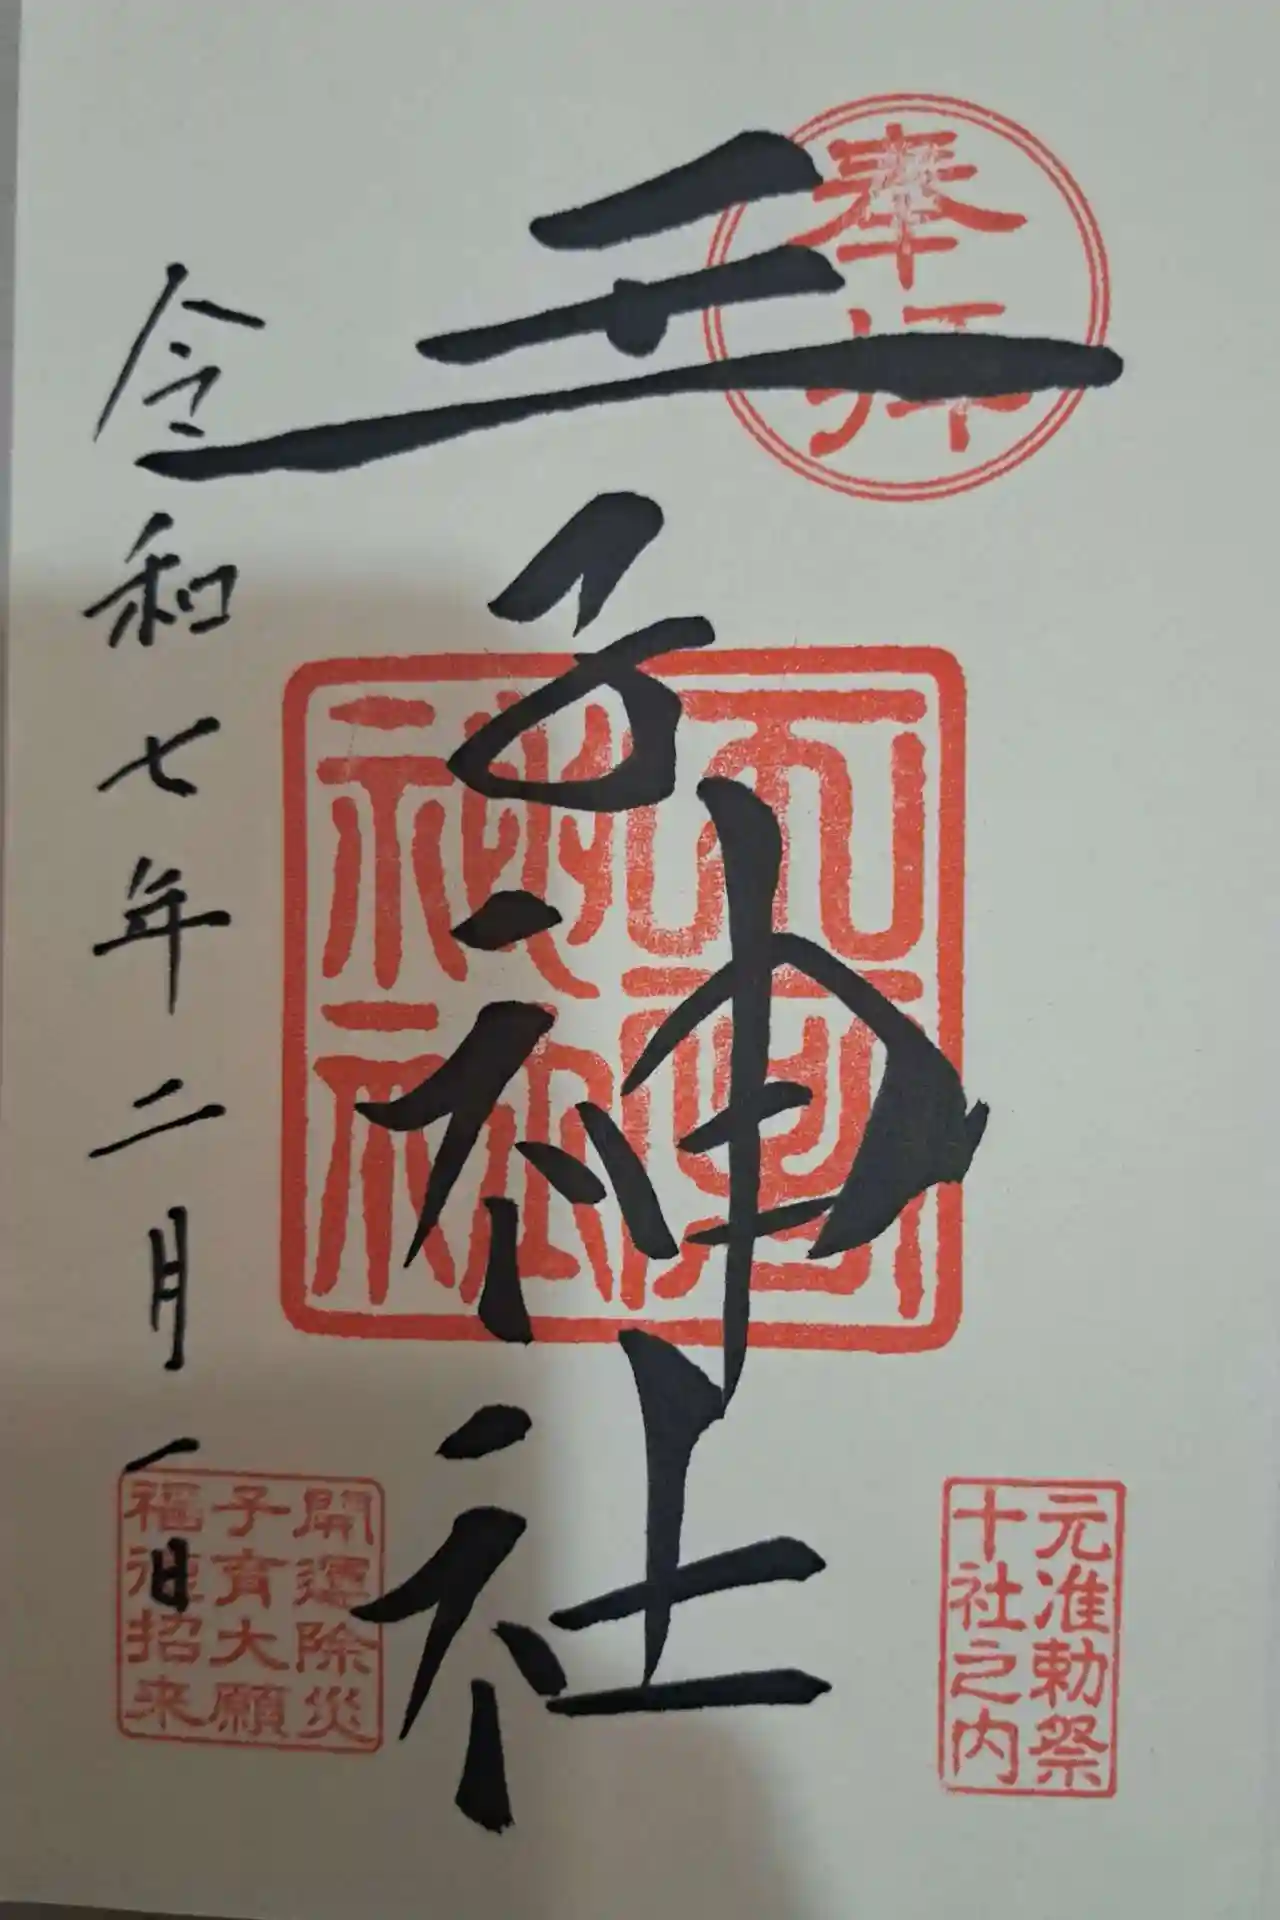 奉拝
元准勅祭
十社之内
王子神社
神社
開運除災
子育大願
福徳招来
令和七年二月一日